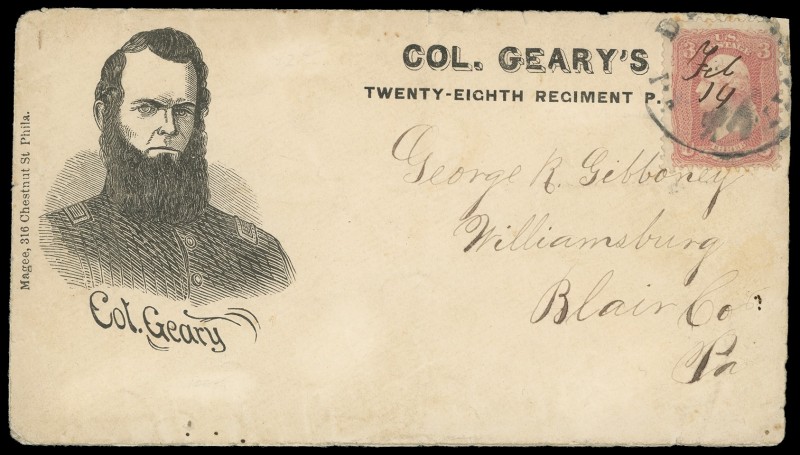 COL. GEARY'S
TWENTY-EIGHTH REGIMENT P.
U.S. POSTAGE
3 3
Feb
14
George R. Gibboney
Williamsburg
Blair Co
Pa
Magee, 316 Chestnut St Phila.
Col. Geary